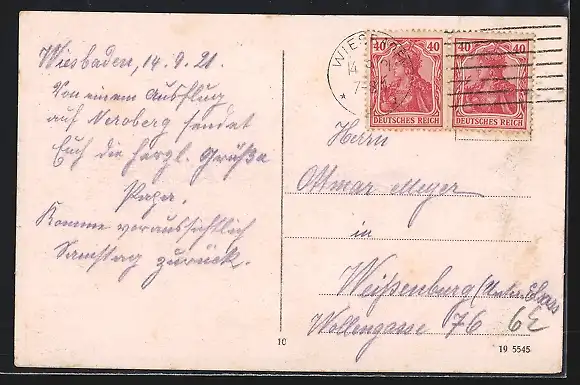 Wiesbaden, 14.9.21.
Von einem Ausflug
auf Neroberg sendet
Euch die herzl. Grüße
Papa.
Komme voraussichtlich
Samstag zurück.
WIESBADEN
14 9 21
7-8
40 40
DEUTSCHES REICH
40 40
DEUTSCHES REICH
Herrn
Ottmar Meyer
in
Weißenburg (Unter Elsass
Wollengasse 76
10
19 5545